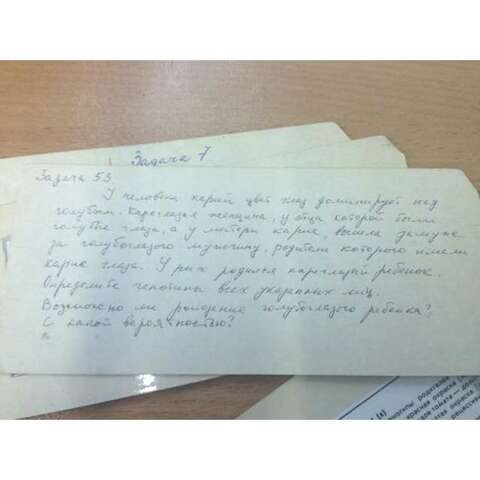 Задача 7
Задача 53.
У человека карий цвет глаз доминирует над
голубым. Кареглазая женщина, у отца которой были
голубые глаза, а у матери карие, вышла замуж
за голубоглазого мужчину, родители которого имели
карие глаза. У них родился кареглазый ребенок.
Определите генотипы всех указанных лиц.
Возможно ли рождение голубоглазого ребенка?
С какой вероятностью?
генотипы родителей
красная окраска
томата — дом
окраска
рецессивн